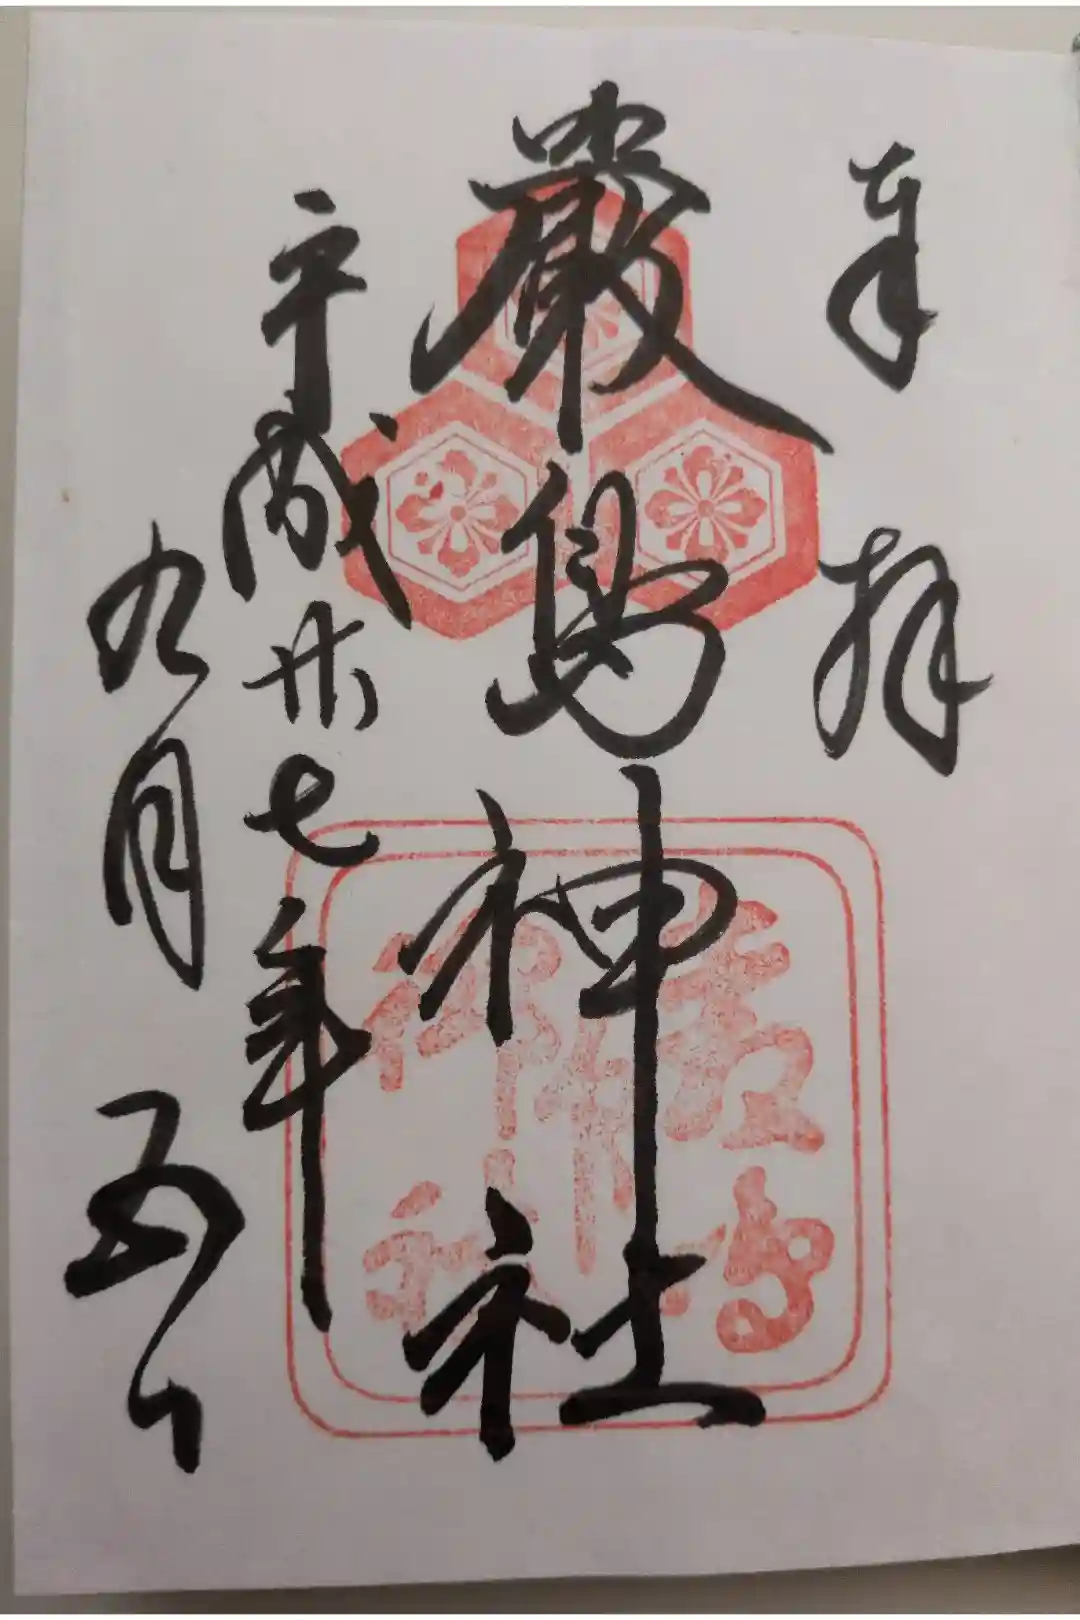 奉拝
嚴島神社
平成廿七年
九月五日